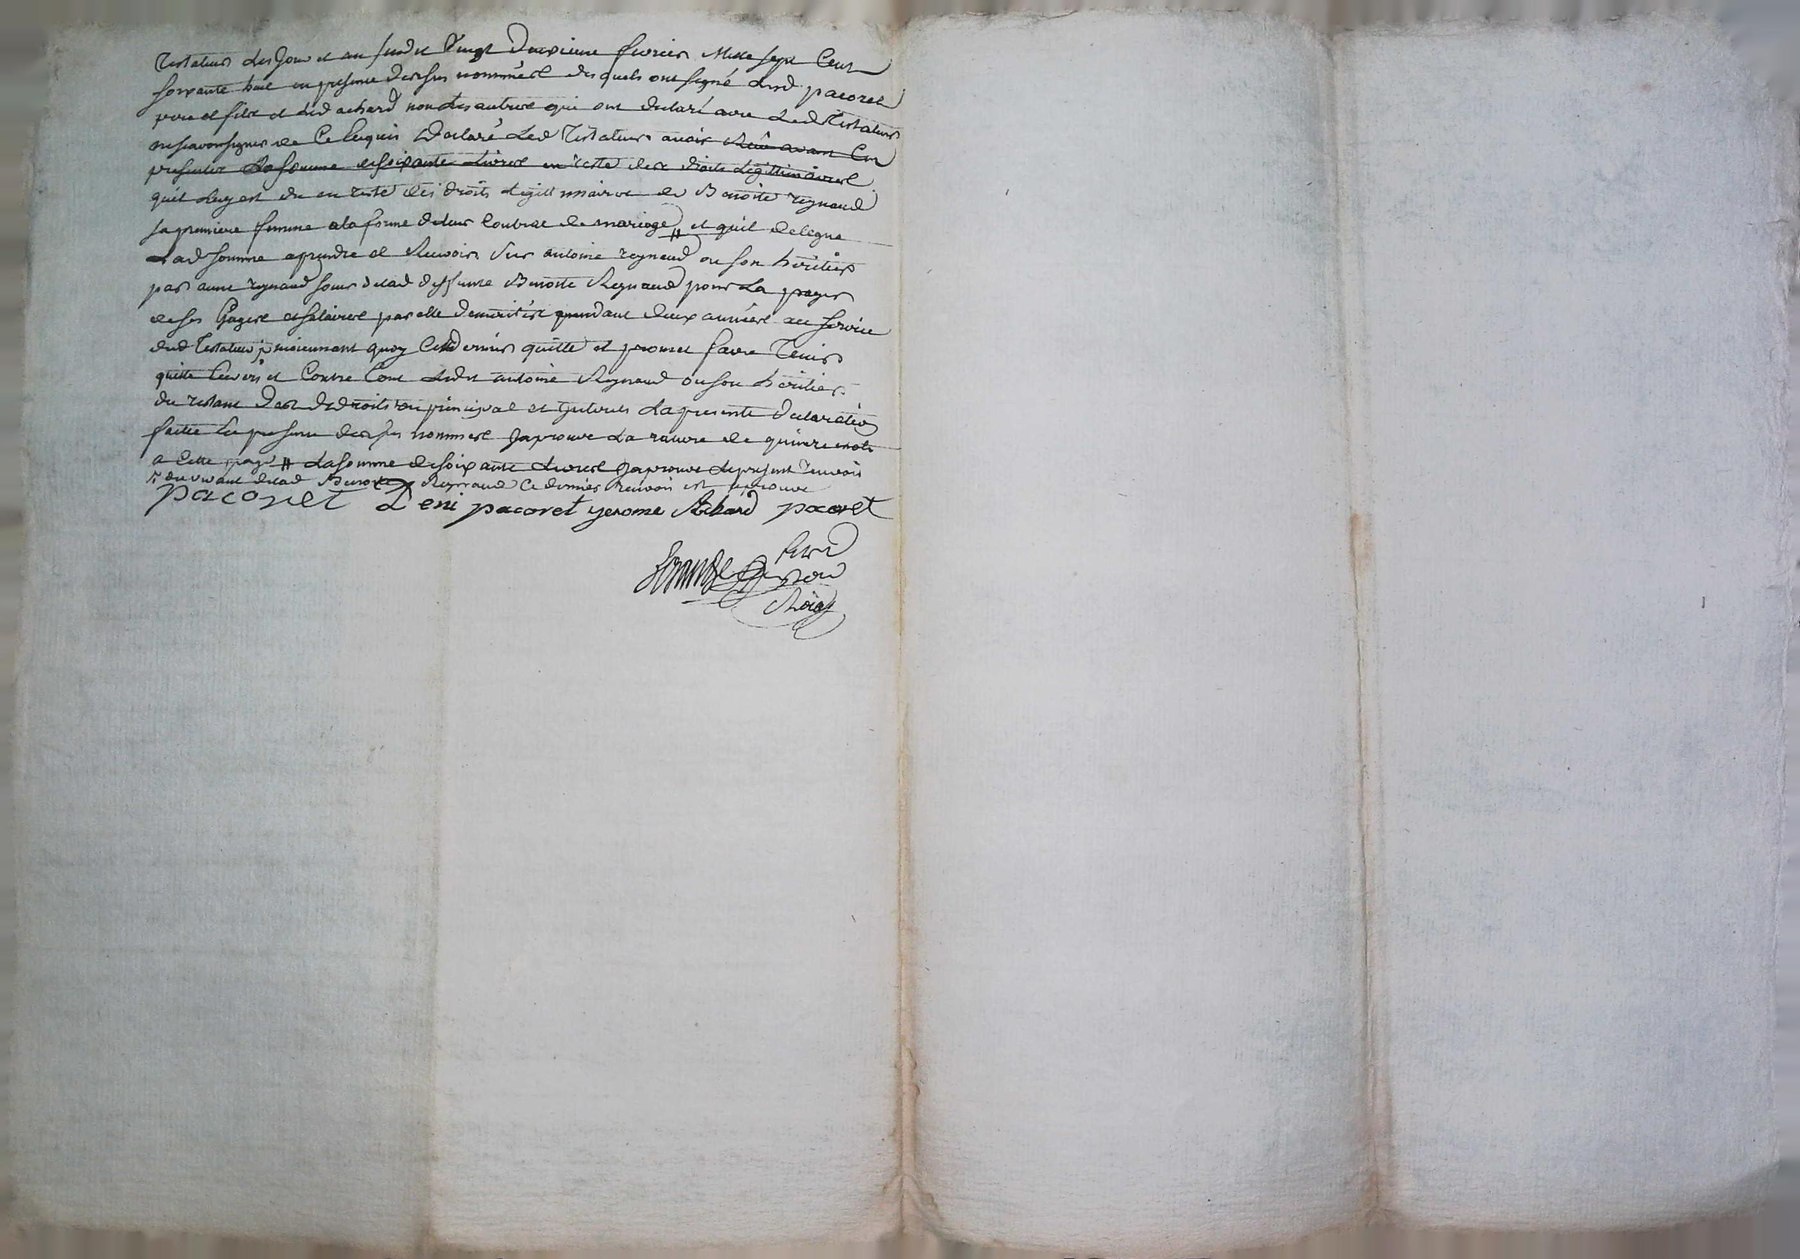 Testateur les Jour et an susdit Vingt deuxieme fevrier Mille sept Cent
soixante huit en presence des sus nommés desquels ont signé lesd pacoret
pere et fils et led achard non les autres qui ont declaré avec led Testateur
ne scavoir signer de Ce Enquis Declaré led Testateur avoir Recu avant Ces
presentes la somme de soixante Livres en reste des droits Legitimaires
qu'il luy est du en reste des droits Legittimaires de Benoite reynaud
sa premiere femme a la forme de leur Contrat de mariage // et qu'il delegue
Lad somme a prendre et Recevoir sur antoine reynaud ou son heritier
par anne reynaud soeur de lad deffunte Benoite Reynaud pour La payer
de ses Gages et salaires par elle demerités pendant deux années au service
dud Testateur moiennant quoy Ce dernier quitte et promet faire Tenir
quitte Envers et Contre Tous ledit antoine Reynaud ou son heritier
du restant desd droits en principal et Interets La presente declaration
faitte En presence des sus nommés Japrouve La rature de quinze mots
a Cette page // La somme de soixante Livres Japrouve le present renvoir
du vivant de lad Benoite Reynaud Ce dernier Renvoir est aprouvé
pacoret Deni pacoret yerome Achard pacoret